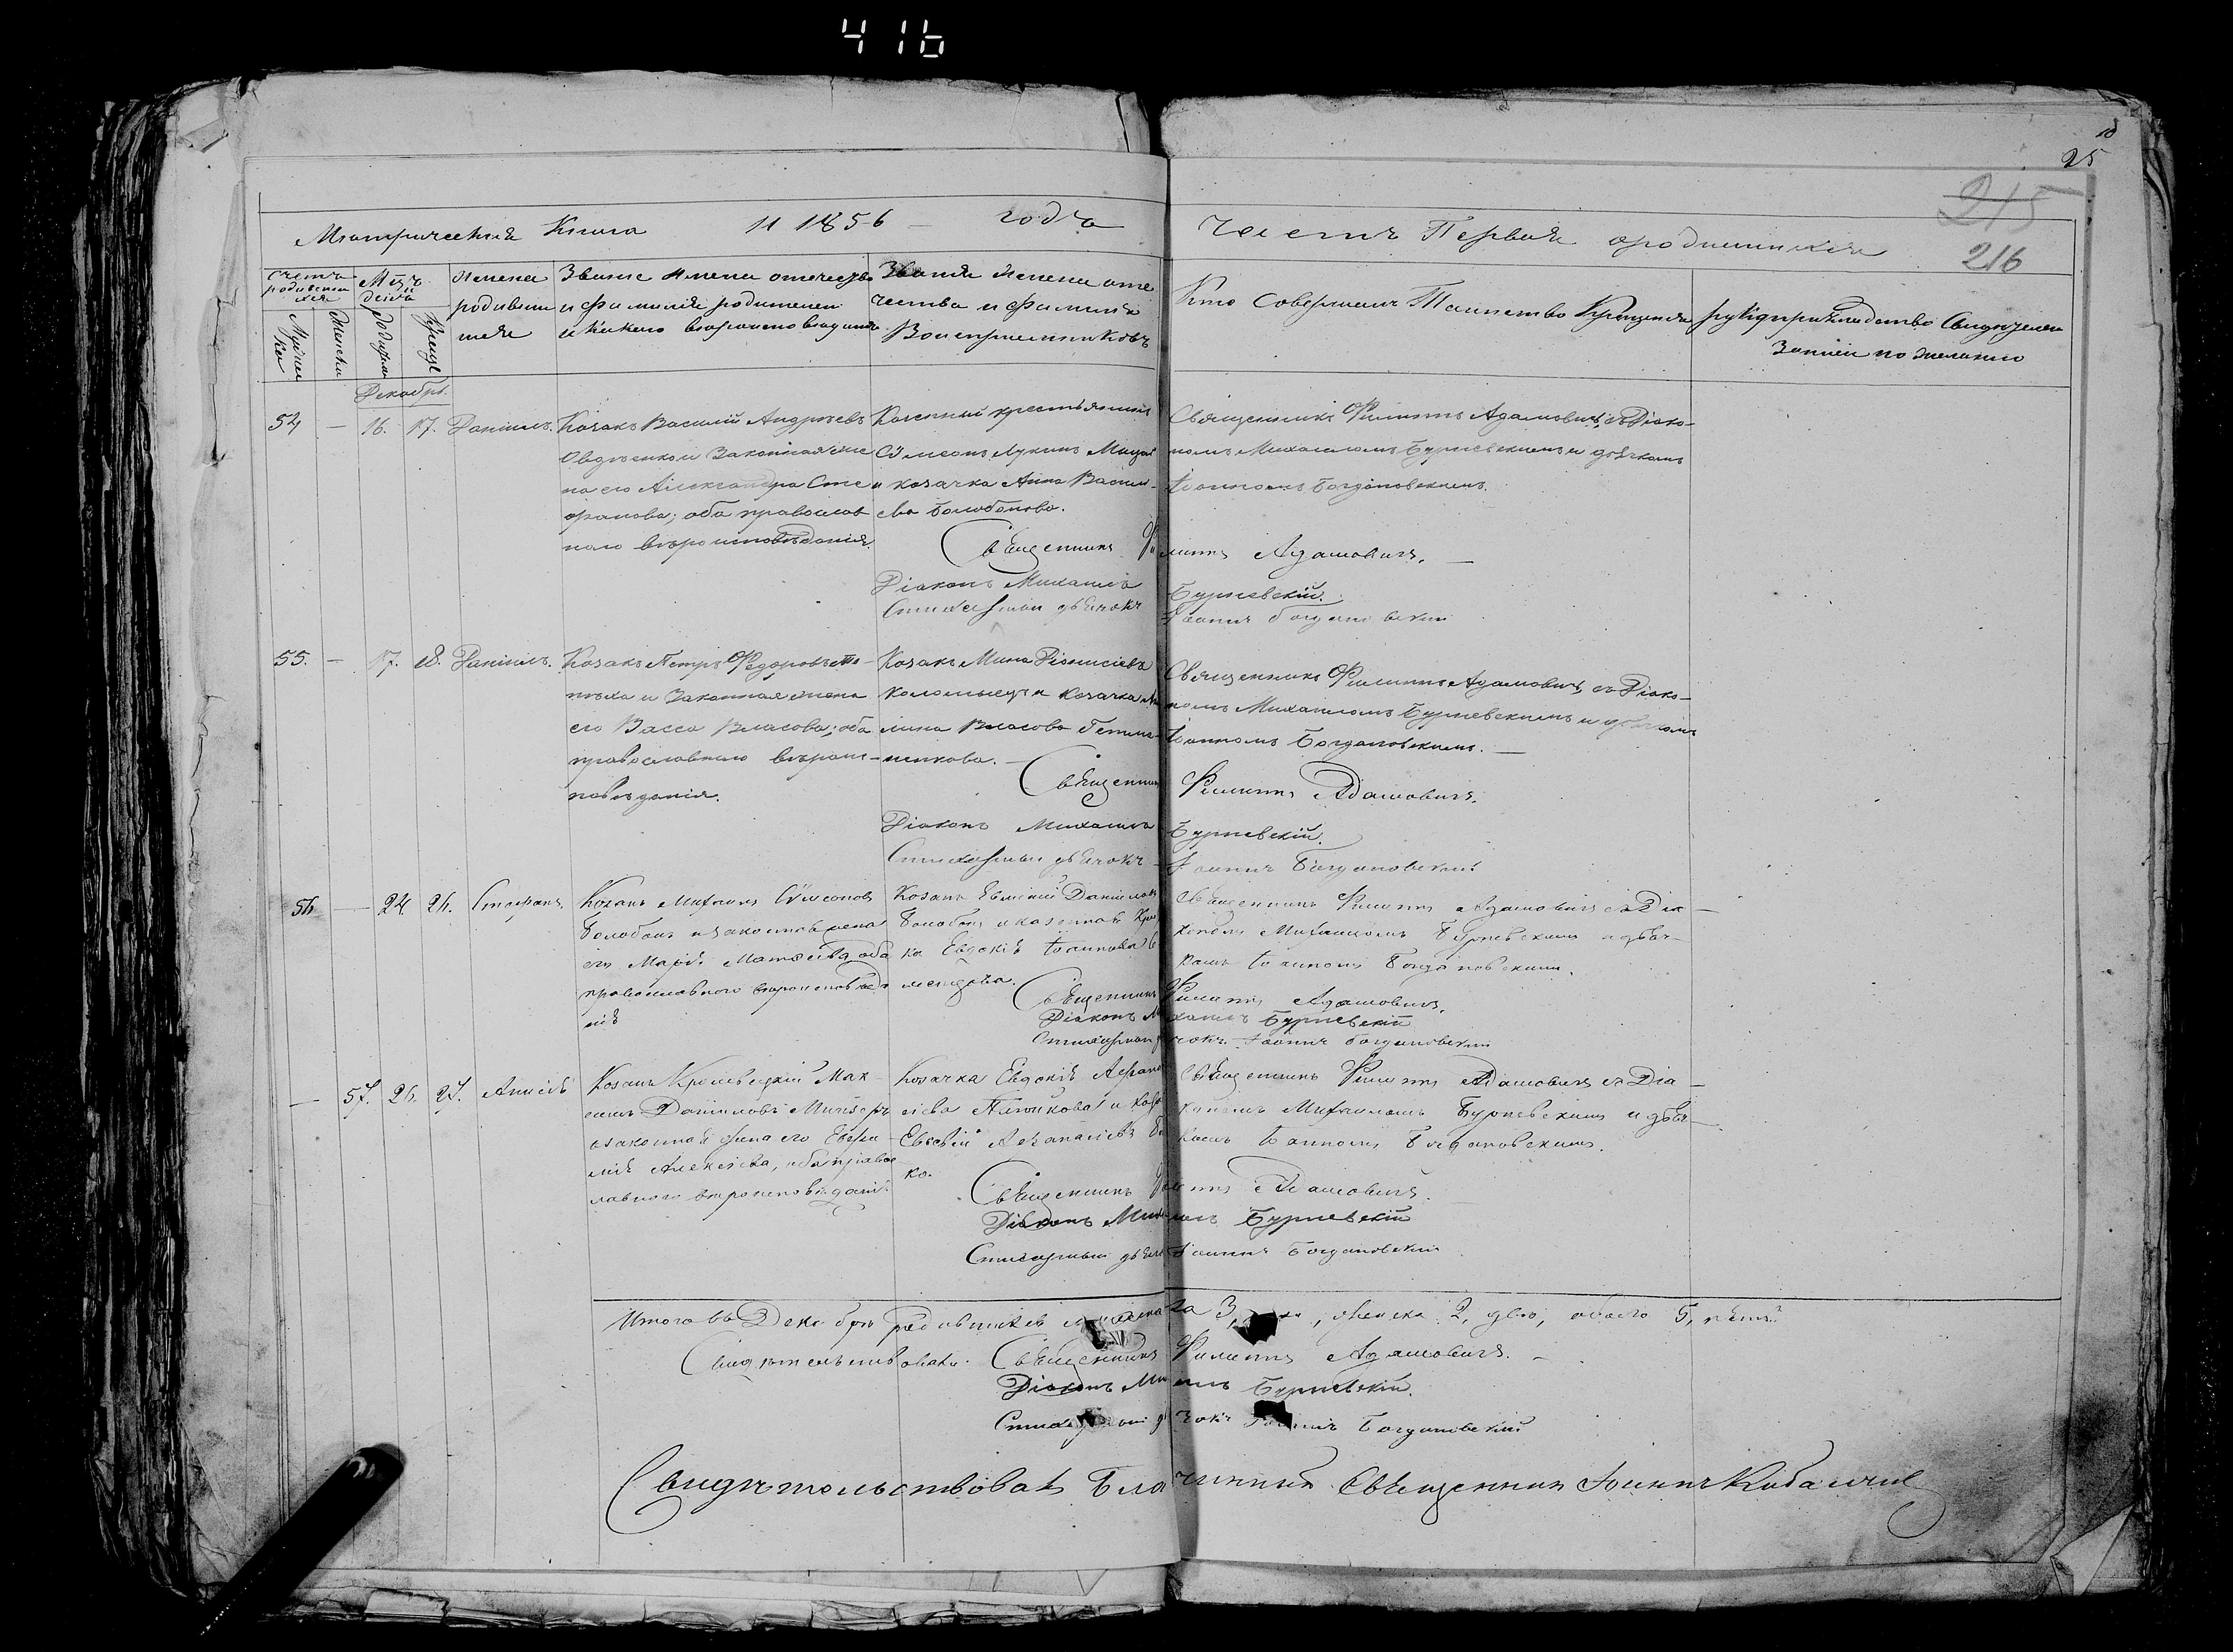 416
25
215
216
Метрическая Книга на 1856 года
Часть Первая о родившихся
Счетъ родившихся
Мужеска
Женска
Мѣсяцъ и день
рожденія
Крещенія
Имена родившихся
Званіе Имена отечество
и Фамилія родителей
и какого вѣроисповѣданія
Званія Имена оте
чества и Фамилія
Воспріемниковъ
Кто Совершалъ Таинство Крещенія
рукоприкладство Свидѣтелей
Записи по желанію
Декабрь.
54 — 16. 17. Даніилъ.
Козакъ Василій Андреевъ
Овдѣенко и Законная же
на его Александра Сте
фанова; оба православ
наго вѣроисповѣданія.
Казенный крестьянинъ
Сѵмеонъ Лукинъ
и козачка Анна Васил
ева Болобанова.
Священникъ Филиппъ Адамовичъ съ Діако
номъ Михаиломъ Бурневскимъ и дьячкомъ
Іоанномъ Богдановскимъ.
Священникъ Филиппъ Адамовичъ.
Діаконъ Михаилъ Бурневскій.
Стихарный дьячокъ Іоаннъ Богдановскій
55. — 17. 18. Даніилъ.
Козакъ Петръ Федоровъ
и Законная жена
его Васса Власова; оба
православнаго вѣроис-
повѣданія.
Козакъ Мина Діонисіевъ
Коломыецъ и Козачка
Власова
Священникъ Филиппъ Адамовичъ съ Діако-
номъ Михаиломъ Бурневскимъ и дьячкомъ
Іоанномъ Богдановскимъ. —
Священникъ Филиппъ Адамовичъ.
Діаконъ Михаилъ Бурневскій.
Стихарный дьячокъ Іоаннъ Богдановскій
56 — 24. 26. Стефанъ.
Козакъ Михаилъ Сѵмеоновъ
Болобанъ и законная жена
его Марія Матѳеева, оба
православнаго вѣроисповѣда
нія
Козакъ Евмений Даниловъ
Болобанъ и казенная
ка Евдокія Іоаннова
Священникъ Филиппъ Адамовичъ съ Діа
кономъ Михаиломъ Бурневскимъ и дьяч-
комъ Іоанномъ Богдановскимъ.
Священникъ Филиппъ Адамовичъ.
Діаконъ Михаилъ Бурневскій
Стихарный дьячокъ Іоаннъ Богдановскій
— 57. 26. 27. Анисія
Козакъ Кролевецкій Мак-
симъ Даниловъ
и законная жена его Евфи-
мія Алексіева, оба правос
лавнаго вѣроисповѣданія.
Козачка Евдокія Афана
сіева
Евсевій Афанасіевъ
ко.
Священникъ Филиппъ Адамовичъ съ Діа
кономъ Михаиломъ Бурневскимъ и дьяч
комъ Іоанномъ Богдановскимъ.
Священникъ Филиппъ Адамовичъ.
Діаконъ Михаилъ Бурневскій
Стихарный дьячокъ Іоаннъ Богдановскій
Итого въ Декабрѣ родившихся мужеска 3, , женска 2, двѣ, обоего 5, пять.
Свидѣтельствовали: Священникъ Филиппъ Адамовичъ. —
Діаконъ Михаилъ Бурневскій.
Стихарный дьячокъ Іоаннъ Богдановскій
Свидѣтельствовалъ Благочинный Священникъ Іоаннъ Кибальчичъ